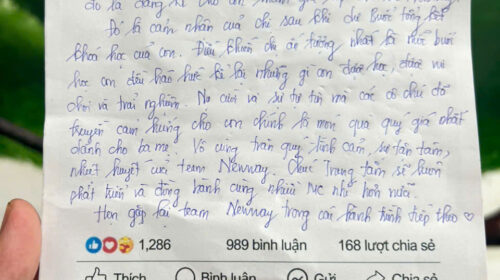 đó là đăng kí cho con tham gia
Đó là cảm nhận của chị sau khi dự buổi tổng kết
khoá học của con. Điều khiến chị ấn tượng nhất là mỗi buổi
học con đều háo hức kể lại những gì con được học, được vui
chơi và trải nghiệm. Nụ cười và sự tự tin mà các cô chú đã
truyền cảm hứng cho con chính là món quà quý giá nhất
dành cho ba mẹ. Vô cùng trân quý tình cảm, sự tận tâm,
nhiệt huyết của team Newway. Chúc Trung tâm sẽ luôn
phát triển và đồng hành cùng nhiều NC nhí hơn nữa.
Hẹn gặp lại team Newway trong các hành trình tiếp theo ♡
1,286 989 bình luận 168 lượt chia sẻ
Thích Bình luận Gửi Chia sẻ